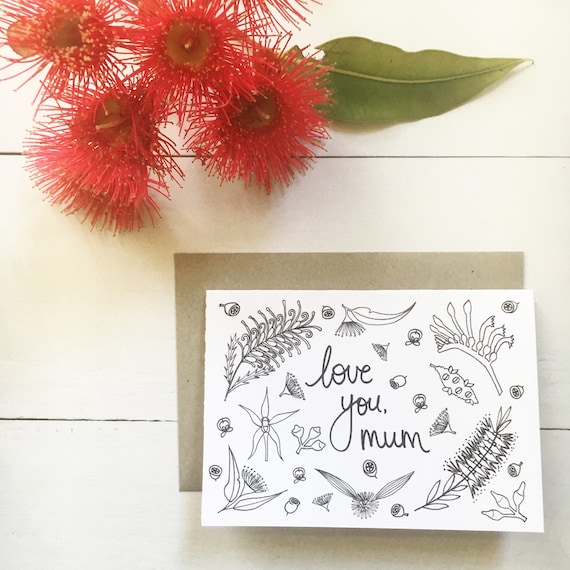 love
you,
mum